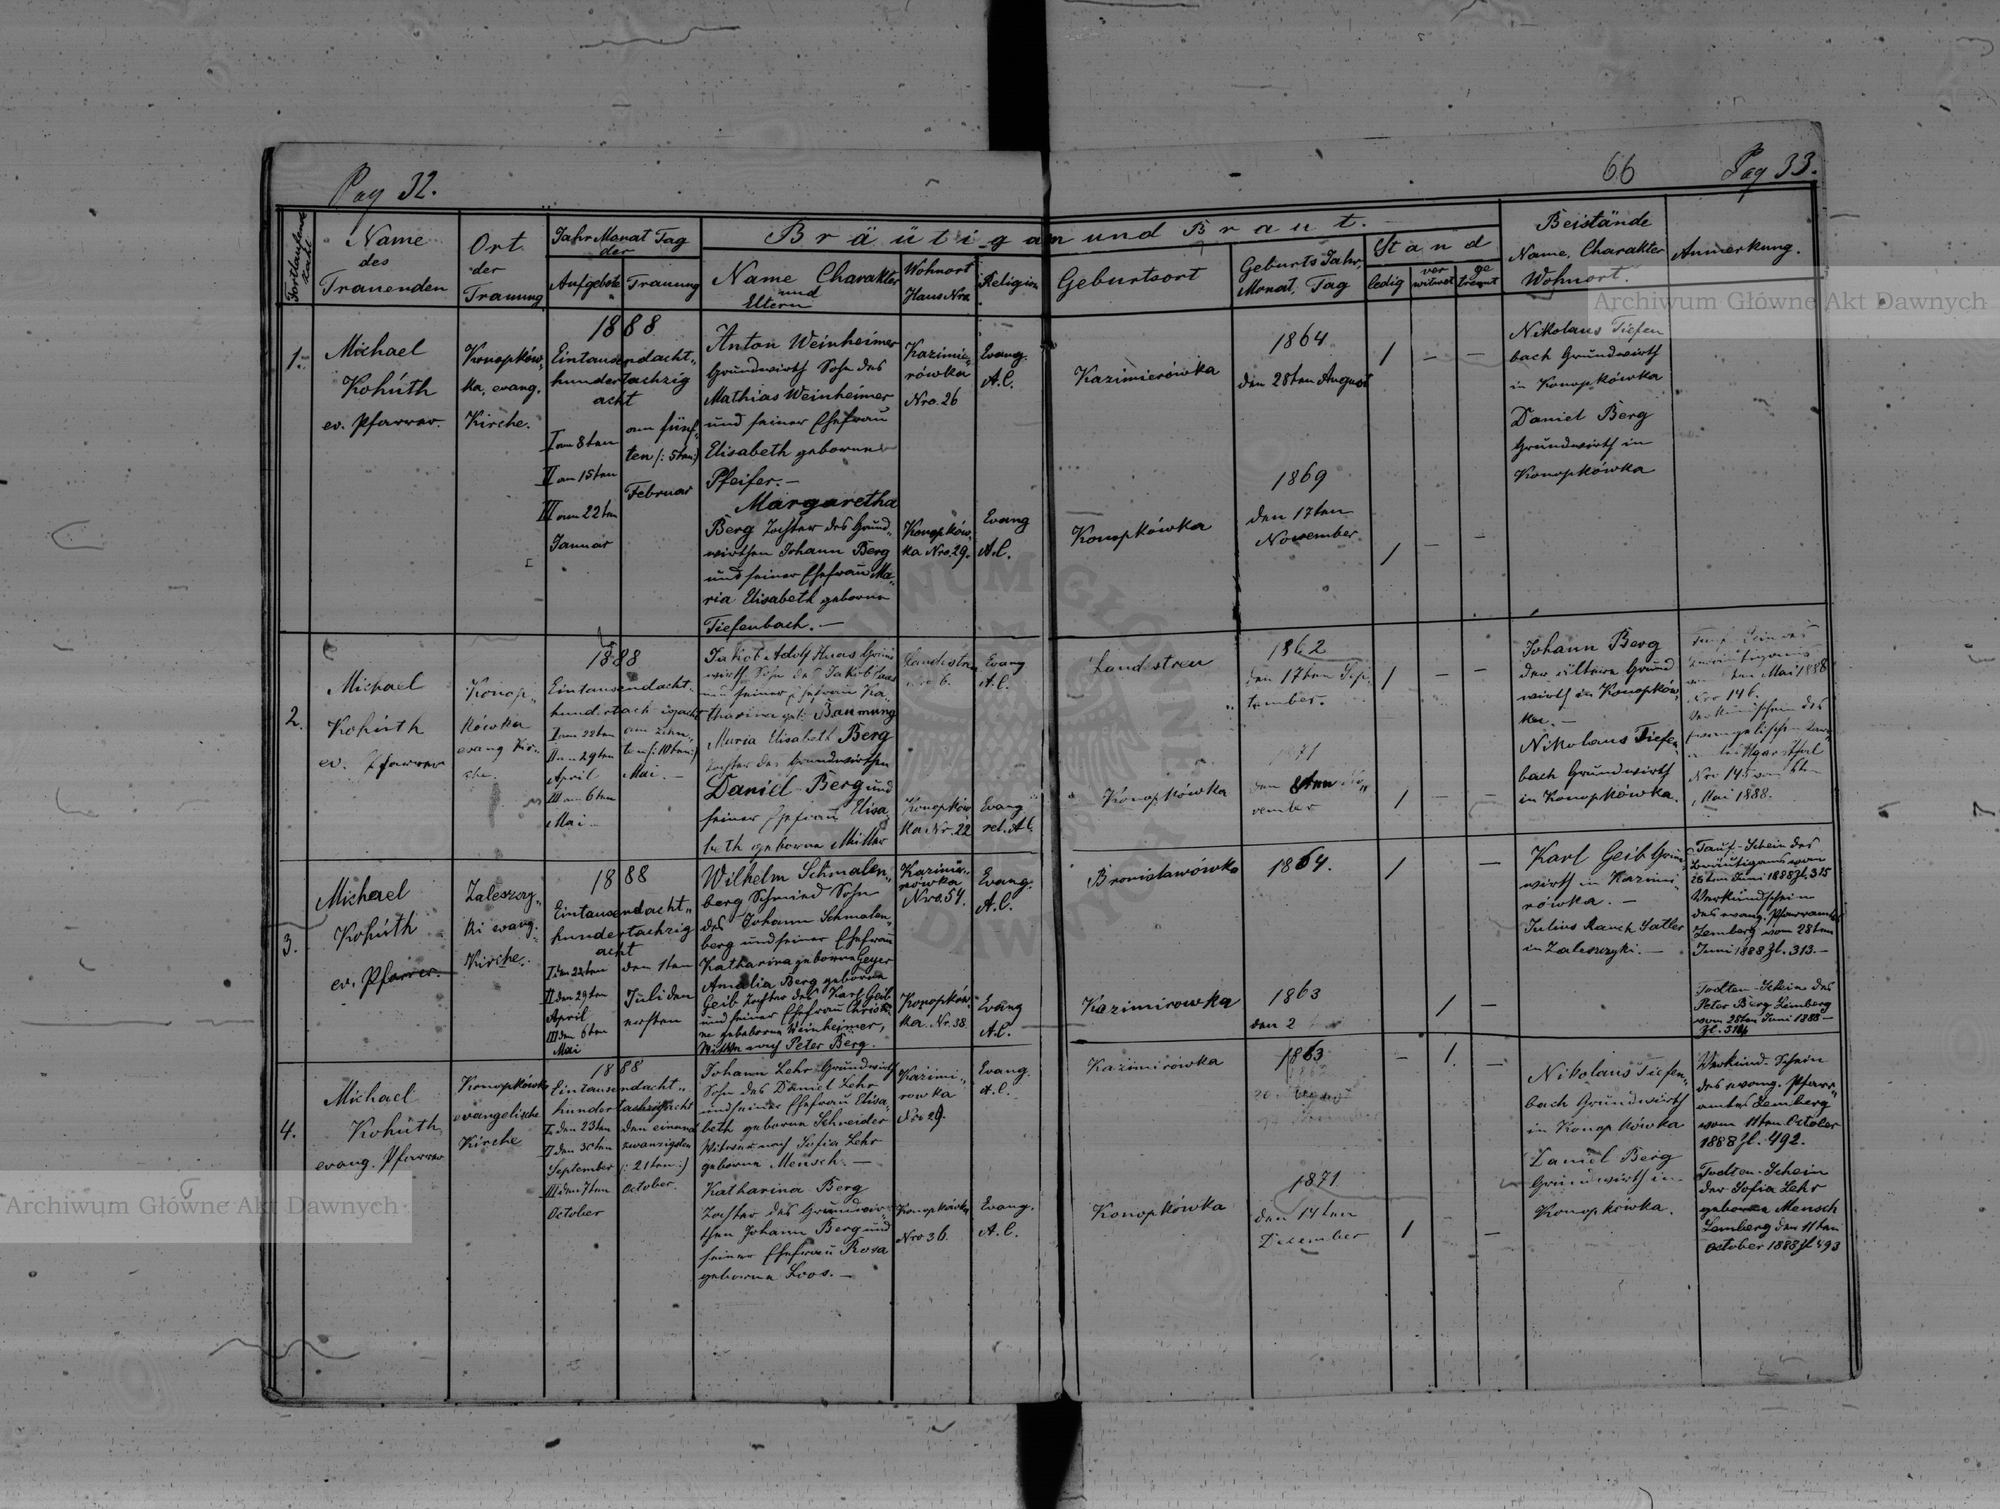 Pag 32.
66
Pag 33.
Fortlaufende Zahl
Name
des
Trauenden
Ort
der
Trauung
Jahr Monat Tag
der
Aufgebote
Trauung
Bräutigam und Braut.
Name Charakter
und
Eltern
Wohnort
Haus Nro.
Religion
Geburtsort
Geburts Jahr,
Monat, Tag
Stand
ledig
ver
witwet
ge
trennt
Beistände
Name, Charakter
Wohnort.
Anmerkung.
1.
Michael
Kohúth
ev. Pfarrer.
Konopków-
ka, evang.
Kirche.
1888
Eintausendacht-
hundertachzig
acht
I am 8ten
II am 15ten
III am 22ten
Januar
am fünf-
ten (: 5ten:)
Februar
Anton Weinheimer
Grundwirth Sohn des
Mathias Weinheimer
und seiner Ehefrau
Elisabeth geborene
Pfeifer. —
Margaretha
Berg Tochter des Grund-
wirthen Johann Berg
und seiner Ehefrau Ma-
ria Elisabeth geborne
Tiefenbach. —
Kazimie-
rówka
Nro. 26
Konopków-
ka Nro. 29.
Evang.
A.C.
Evang
A.C.
Kazimierówka
Konopkówka
1864
den 28ten August
1869
den 17ten
November
/ — —
/ — —
Nikolaus Tiefen
bach Grundwirth
in Konopkówka
Daniel Berg
Grundwirth in
Konopkówka
2.
Michael
Kohúth
ev. Pfarrer
Konop-
kówka
evang. Kir-
che.
1888
Eintausendacht-
hundertachzigacht
I am 22ten
II am 29ten
April
III am 6ten
Mai
am zehn-
ten (: 10ten:)
Mai. —
Jakob Adolf Haas Grund
wirth Sohn des Jakob Haas
und seiner Ehefrau Ka-
tharina geb. Baumung
Maria Elisabeth Berg
Tochter des Grundwirthen
Daniel Berg und
seiner Ehefrau Elisa-
beth geborne Müller
Landestreu
Nro 6.
Konopków
ka Nr. 22
Evang
A.C.
Evang
A.C.
Landestreu
Konopkówka
1862
den 17ten Sep-
tember.
den 8ten No-
vember
/ — —
/ — —
Johann Berg
der ältere Grund
wirth in Konopków-
ka. —
Nikolaus Tiefen-
bach Grundwirth
in Konopkówka.
Mai 1888
Nro 146.
Verkündschein des
evangelischen
Nro 145 vom
Mai 1888.
3.
Michael
Kohúth
ev. Pfarrer.
Zaleszczy-
ki evang.
Kirche.
1888
Eintausendacht-
hundertachzig
acht
I den 22ten
II den 29ten
April
III den 6ten
Mai
den 1ten
Juli den
ersten
Wilhelm Schmalen-
berg Schmied Sohn
des Johann Schmalen-
berg und seiner Ehefrau
Katharina geborne Geyer
Amalia Berg geborne
Geib Tochter des Karl Geib
und seiner Ehefrau Christi-
ne geborne Weinheimer,
Witwe nach Peter Berg.
Kazimie-
rówka
Nro. 54.
Konopków-
ka. Nr. 38.
Evang.
A.C.
Evang
A.C.
Bronislawówka
Kazimirowka
1864.
1863
den 2
/ —
/ —
Karl Geib Grund-
wirth in Kazimi-
rówka. —
Julius Rauch Satler
in Zaleszczyki. —
Tauf-Schein des
Bräutigams vom
26ten Juni 1888 Zl. 315
Verkündschein
des evang. Pfarramtes
Lemberg vom 28ten
Juni 1888 Zl. 313. —
Todten-Schein des
Peter Berg Lemberg
vom 28ten Juni 1888 —
Zl. 314
4.
Michael
Kohúth
evang. Pfarrer
Konopkówka
evangelische
Kirche
1888
Eintausendacht-
hundertachzigacht
I. den 23ten
II den 30ten
September
III den 7ten
October
den einund
zwanzigsten
(: 21ten:)
October.
Johann Lehr Grundwirth
Sohn des Daniel Lehr
und seiner Ehefrau Elisa-
beth geborne Schneider
Witwer nach Sofia Lehr
geborne Mensch. —
Katharina Berg
Tochter des Grundwir-
then Johann Berg und
seiner Ehefrau Rosa
geborne Loos. —
Kazimi-
rowka
Nro 29.
Konopkówka
Nro 36.
Evang.
A.C.
Evang.
A.C.
Kazimirówka
Konopkówka
1863
1871
den 14ten
December
— / —
/ —
Nikolaus Tiefen-
bach Grundwirth
in Konopkówka
Daniel Berg
Grundwirth in
Konopkówka.
Verkünd-Schein
des evang. Pfarr-
amtes Lemberg
vom 11ten October
1888 Zl. 492.
Todten-Schein
der Sofia Lehr
geborne Mensch
Lemberg den 11ten
October 1888 Zl 493
Archiwum Główne Akt Dawnych
Archiwum Główne Akt Dawnych